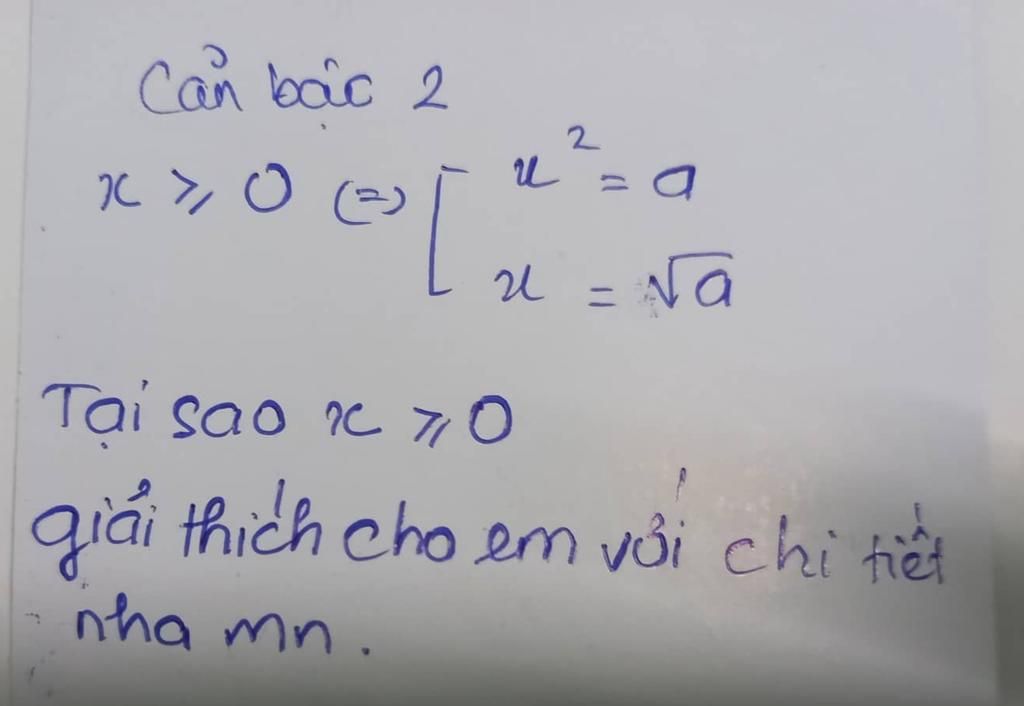 Cản bậc 2
x ⩾ 0 (=) [ x² = a
x = √a
Tại sao x ⩾ 0
giải thích cho em với chi tiết
nha mn.